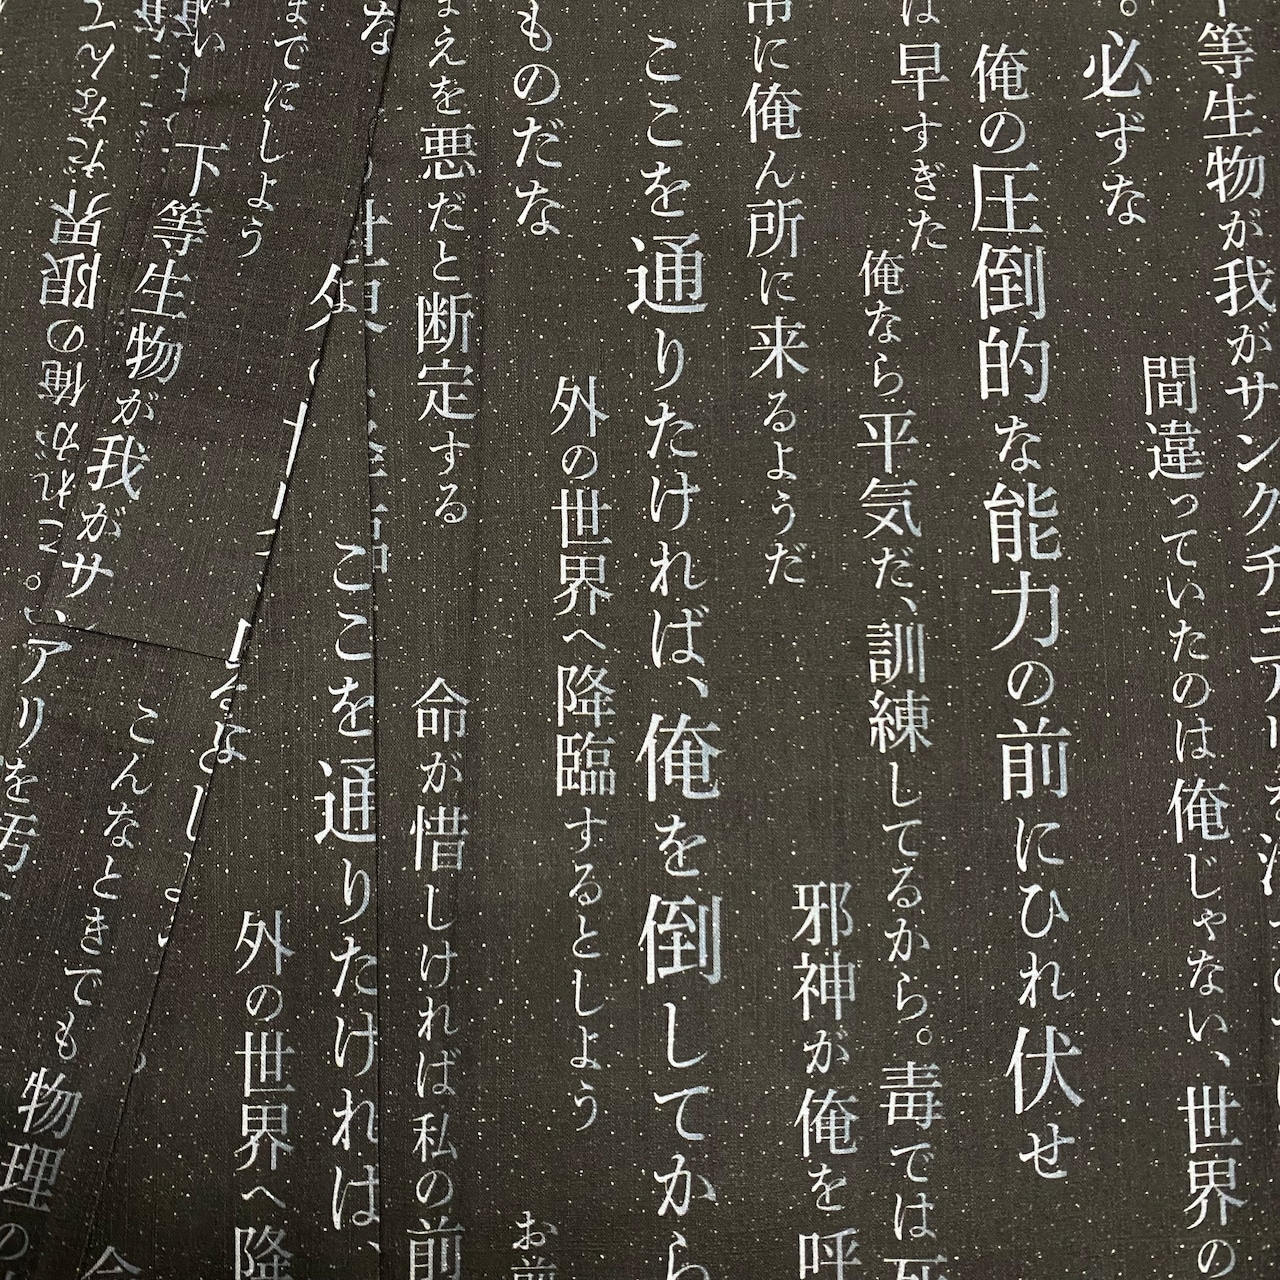 下等生物が我がサンクチュアリを
間違っていたのは俺じゃない、世界の
。必ずな
俺の圧倒的な能力の前にひれ伏せ
は早すぎた
俺なら平気だ、訓練してるから。毒では死
に俺ん所に来るようだ
邪神が俺を呼
ここを通りたければ、俺を倒してから
ものだな
外の世界へ降臨するとしよう
お前
まえを悪だと断定する
命が惜しければ私の前
ここを通りたければ、
外の世界へ降
までにしよう
下等生物が我がサ
こんなときでも物理の
アリを汚
これが俺の限界だなんて